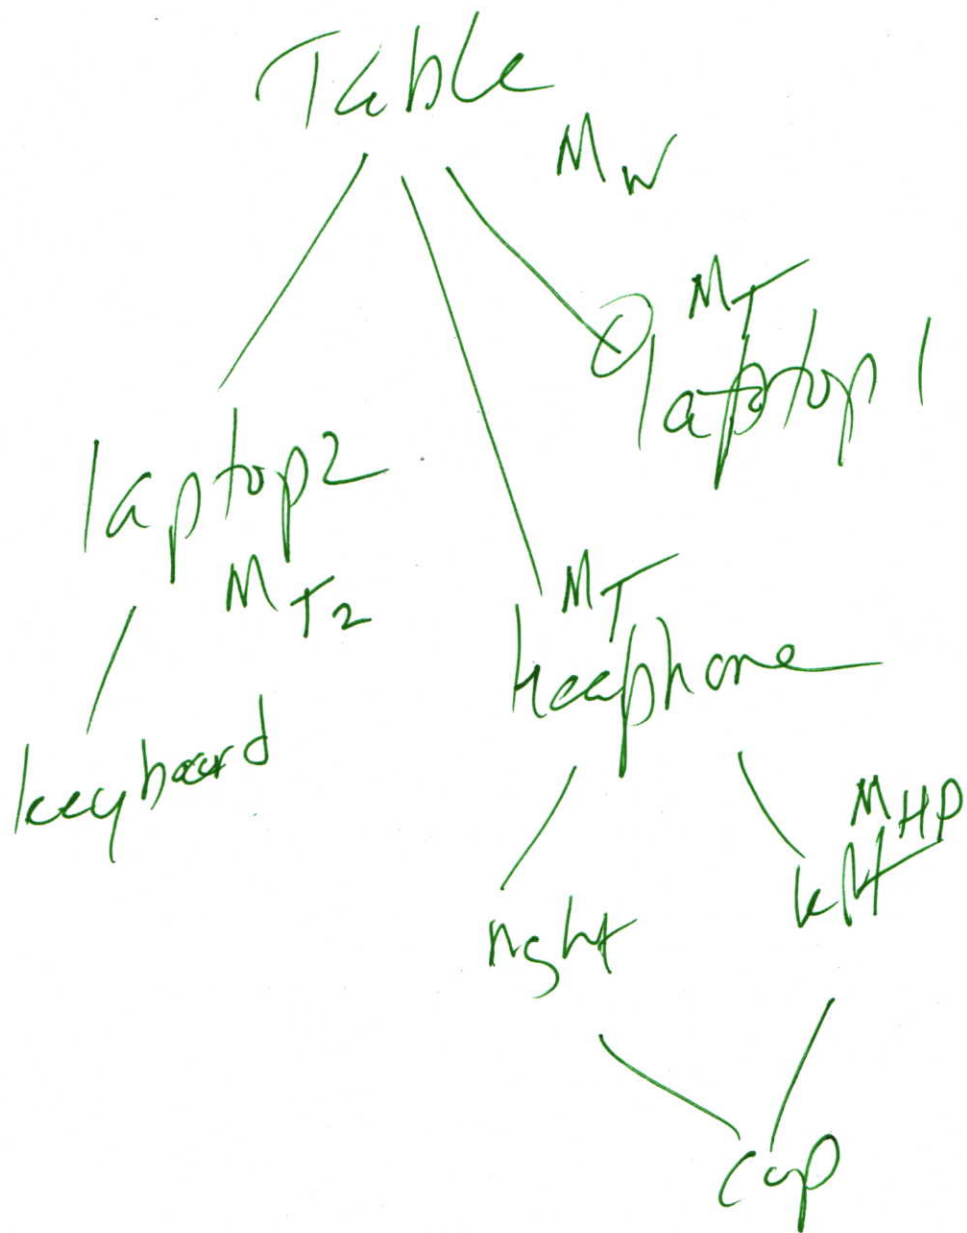 Table
M W
M T
laptop1
laptop2
M T2
M T
Heaphone
keyboard
M HP
left
right
cup